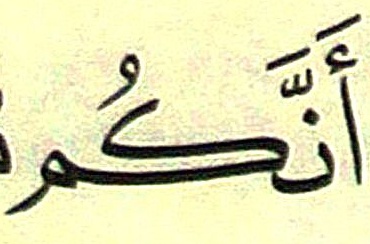 أَنَّكُم